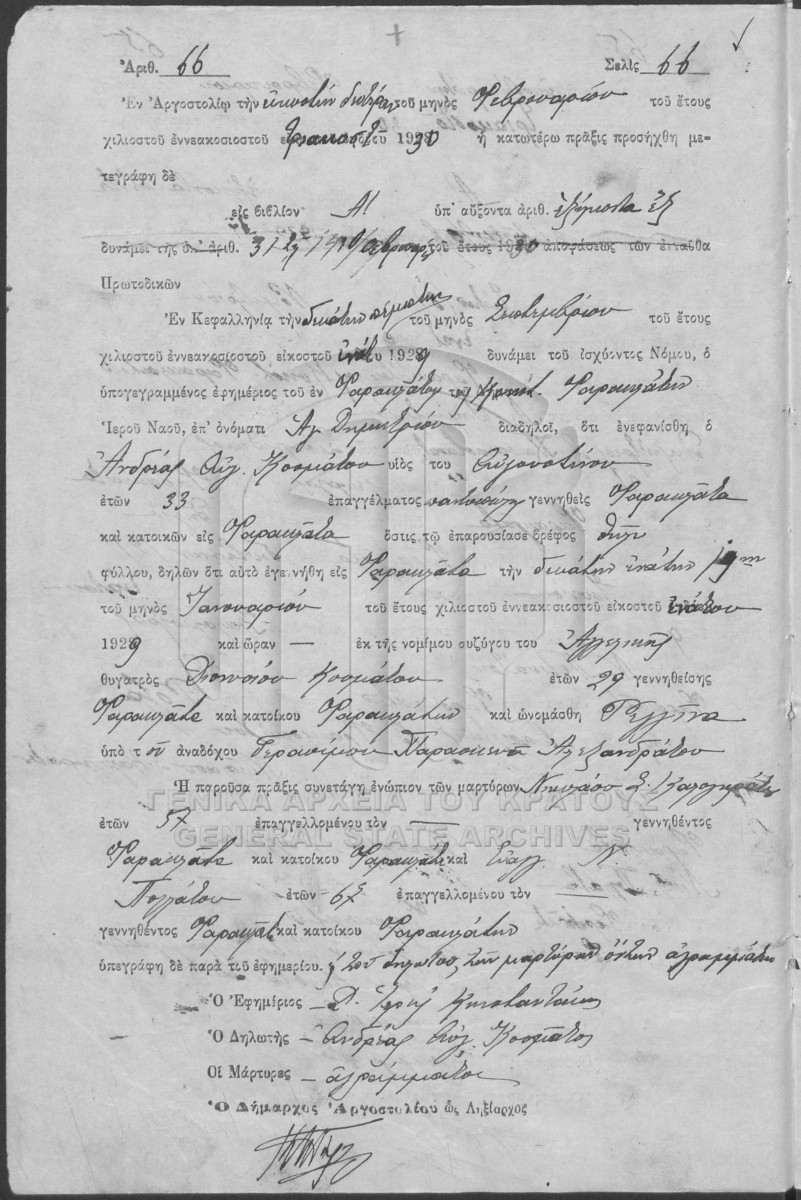 Ἀριθ. 66 Σελὶς 66
Ἐν Ἀργοστολίῳ τὴν εἰκοστὴν δευτέραν τοῦ μηνὸς Φεβρουαρίου τοῦ ἔτους
χιλιοστοῦ ἐννεακοσιοστοῦ τριακοστ 1930 ἡ κατωτέρω πρᾶξις προσήχθη με-
τεγράφη δὲ
εἰς βιβλίον Α' ὑπ' αὔξοντα ἀριθ. ἑξήκοντα ἓξ
δυνάμει τῆς ὑπ' ἀριθ. τοῦ ἔτους 1930 ἀποφάσεως τῶν ἐνταῦθα
Πρωτοδικῶν
Ἐν Κεφαλληνίᾳ τὴν δεκάτην πέμπτην τοῦ μηνὸς Σεπτεμβρίου τοῦ ἔτους
χιλιοστοῦ ἐννεακοσιοστοῦ εἰκοστοῦ ἐνάτου 1929 δυνάμει τοῦ ἰσχύοντος Νόμου, ὁ
ὑπογεγραμμένος ἐφημέριος τοῦ ἐν Φαρακλάτοις τῆς Κοινότ. Φαρακλάτων
Ἱεροῦ Ναοῦ, ἐπ' ὀνόματι Ἁγ. Δημητρίου διαδηλοῖ, ὅτι ἐνεφανίσθη ὁ
Ἀνδρέας Αὐγ. Κοσμάτος υἱὸς τοῦ Αὐγουστίνου
ἐτῶν 33 ἐπαγγέλματος παντοπώλης γεννηθεὶς Φαρακλάτα
καὶ κατοικῶν εἰς Φαρακλάτα ὅστις τῷ ἐπαρουσίασε βρέφος θῆλυ
φύλλου, δηλῶν ὅτι αὐτὸ ἐγεννήθη εἰς Φαρακλάτα τὴν δεκάτην ἐνάτην 19ην
τοῦ μηνὸς Ἰανουαρίου τοῦ ἔτους χιλιοστοῦ ἐννεακοσιοστοῦ εἰκοστοῦ ἐνάτου
1929 καὶ ὥραν — ἐκ τῆς νομίμου συζύγου του Ἀγγελικῆς
θυγατρὸς Διονυσίου Κοσμάτου ἐτῶν 29 γεννηθείσης
Φαρακλάτα καὶ κατοίκου Φαρακλάτων καὶ ὠνομάσθη Ρεγγίνα
ὑπὸ τοῦ ἀναδόχου Γερασίμου Παρασκευᾶ Ἀλεξανδράτου
Ἡ παροῦσα πρᾶξις συνετάγη ἐνώπιον τῶν μαρτύρων Νικολάου Σ. Καλογηράτου
ΓΕΝΙΚΑ ΑΡΧΕΙΑ ΤΟΥ ΚΡΑΤΟΥΣ
ἐτῶν 57 ἐπαγγελλομένου τὸν — γεννηθέντος
GENERAL STATE ARCHIVES
Φαρακλάτα καὶ κατοίκου Φαρακλάτων καὶ Εὐαγ. Ν.
ἐτῶν 67 ἐπαγγελλομένου τὸν —
γεννηθέντος Φαρακλάτα καὶ κατοίκου Φαρακλάτων
ὑπεγράφη δὲ παρὰ τοῦ ἐφημερίου, τοῦ δηλωτοῦ, τῶν μαρτύρων ὄντων ἀγραμμάτων
Ὁ Ἐφημέριος – Δ.
Ὁ Δηλωτὴς – Ἀνδρέας Αὐγ. Κοσμάτος
Οἱ Μάρτυρες – ἀγράμματοι
Ὁ Δήμαρχος Ἀργοστολίου ὡς Ληξίαρχος